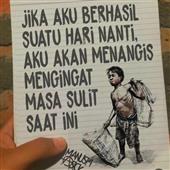 JIKA AKU BERHASIL
SUATU HARI NANTI,
AKU AKAN MENANGIS
MENGINGAT
MASA SULIT
SAAT INI